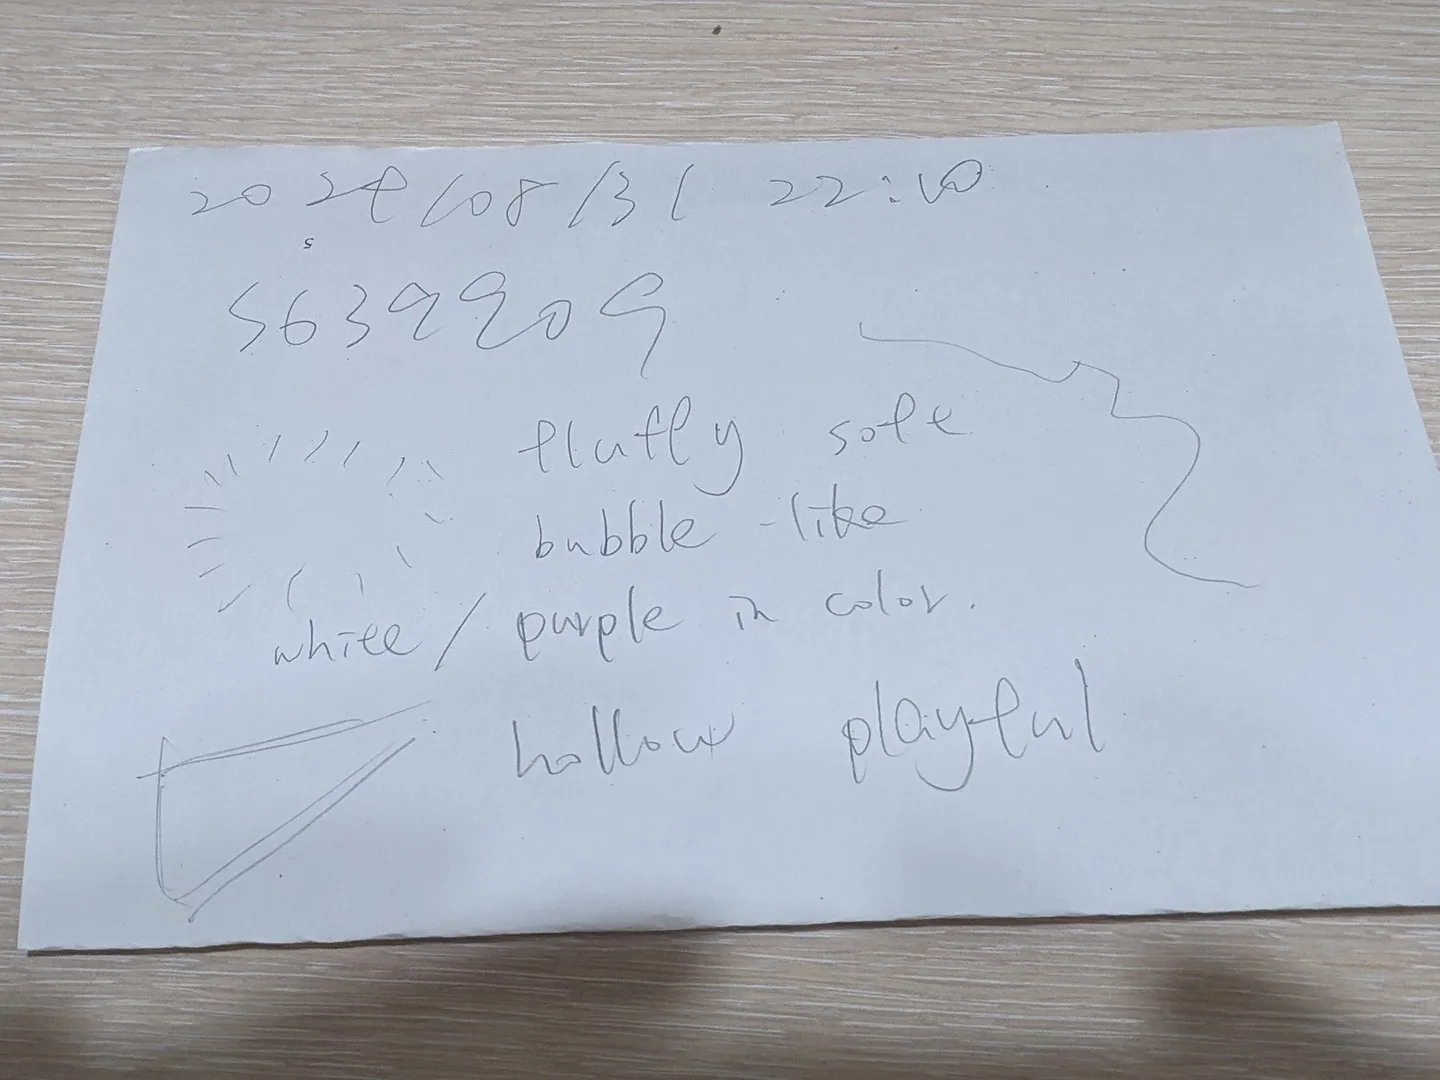 2024/08/31 22:10
5
5639909
fluffy soft
bubble-like
white/purple in color.
hollow playful